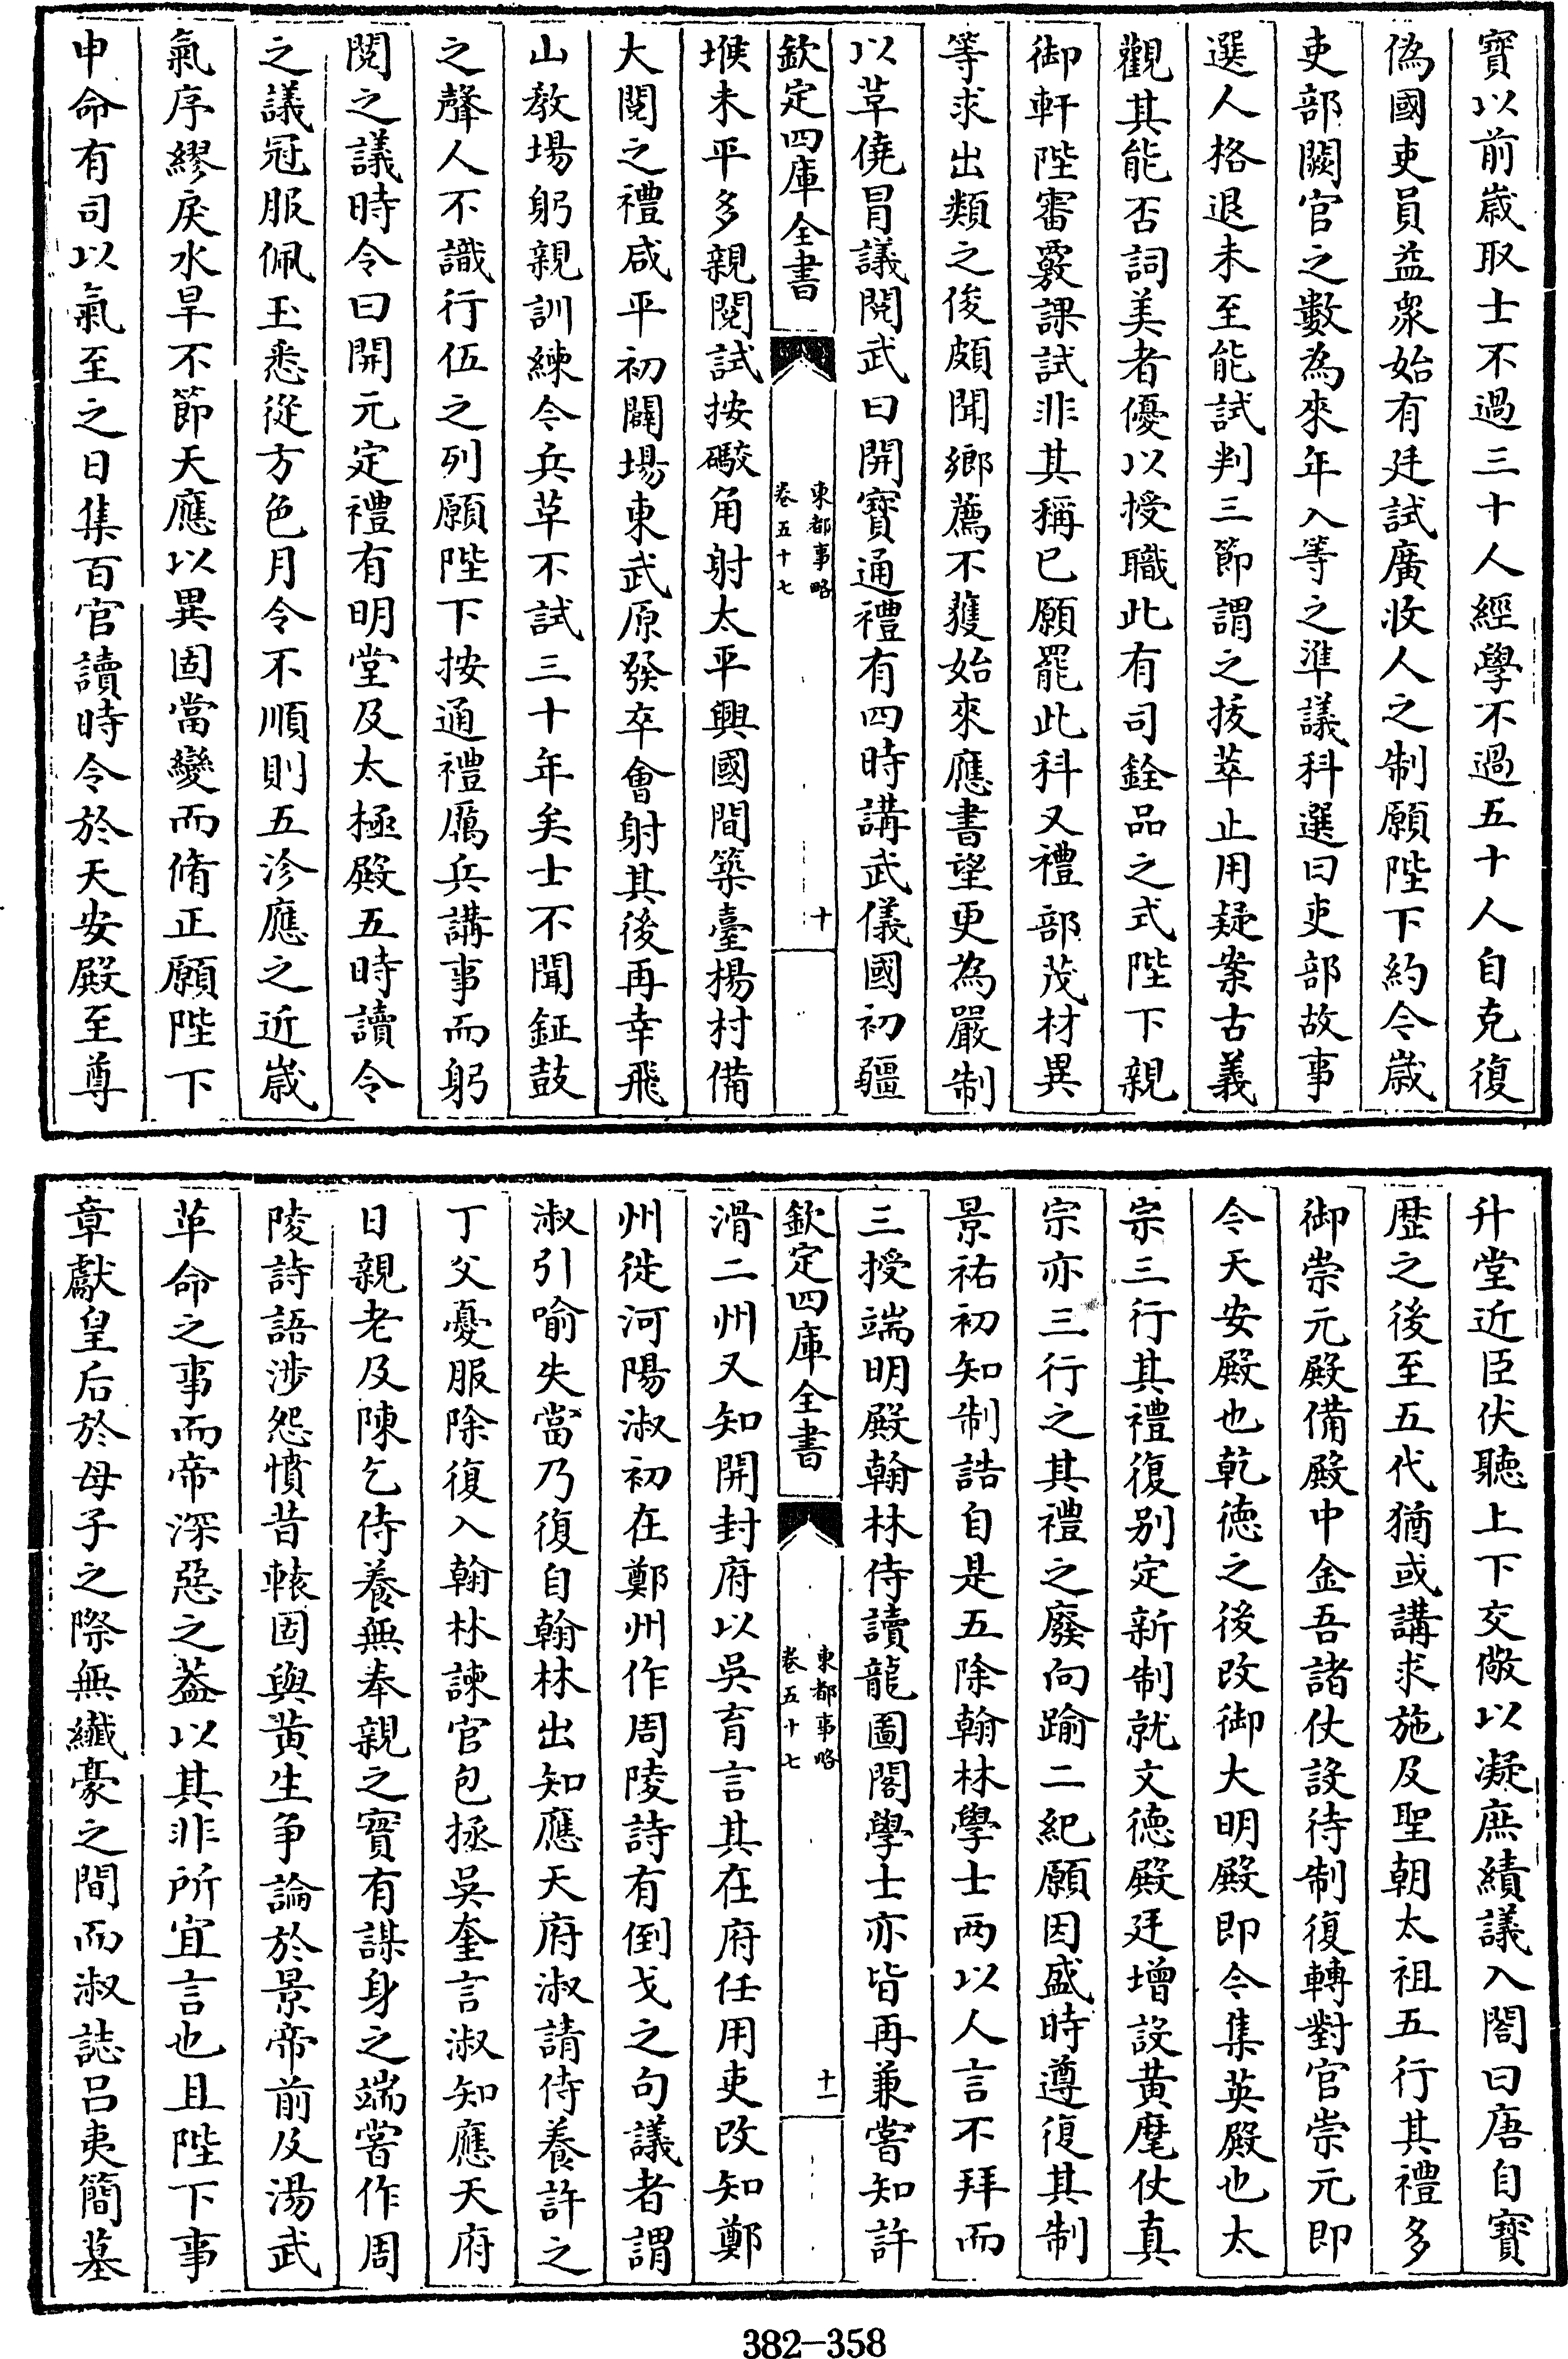 寳以前歲取士不過三十人經學不過五十人自克復
偽國吏員益衆始有廷試廣收人之制願陛下約今歲
吏部闕官之數為來年入等之準議科選曰吏部故事
選人格退未至能試判三節謂之拔萃止用疑案古義
觀其能否詞美者優以授職此有司銓品之式陛下親
御軒陛審覈課試非其稱已願罷此科又禮部茂材異
等求出類之俊頗聞鄉薦不獲始來應書望更為嚴制
以草僥冒議閱武曰開寳通禮有四時講武儀國初疆
欽定四庫全書
東都事略
卷五十七
十
堠未平多親閱試按礮角射太平興國間築臺楊村備
大閱之禮咸平初闢場東武原發卒會射其後再幸飛
山教場躬親訓練令兵革不試三十年矣士不聞鉦鼓
之聲人不識行伍之列願陛下按通禮厲兵講事而躬
閱之議時令曰開元定禮有明堂及太極殿五時讀令
之議冠服佩玉悉從方色月令不順則五沴應之近歲
氣序繆戾水旱不節天應以異固當變而脩正願陛下
申命有司以氣至之日集百官讀時令於天安殿至尊
升堂近臣伏聽上下交儆以凝庶績議入閤曰唐自寳
歷之後至五代猶或講求施及聖朝太祖五行其禮多
御崇元殿備殿中金吾諸仗設待制復轉對官崇元即
今天安殿也乾德之後改御大明殿即今集英殿也太
宗三行其禮復别定新制就文德殿廷增設黃麾仗真
宗亦三行之其禮之廢向踰二紀願因盛時遵復其制
景祐初知制誥自是五除翰林學士两以人言不拜而
三授端明殿翰林侍讀龍圖閣學士亦皆再兼嘗知許
欽定四庫全書
東都事略
卷五十七
十一
滑二州又知開封府以吳育言其在府任用吏改知鄭
州徙河陽淑初在鄭州作周陵詩有倒戈之句議者謂
淑引喻失當乃復自翰林出知應天府淑請侍養許之
丁父憂服除復入翰林諫官包拯吳奎言淑知應天府
日親老及陳乞侍養無奉親之實有謀身之端嘗作周
陵詩語涉怨憤昔轅固與黃生争論於景帝前及湯武
革命之事而帝深惡之葢以其非所宜言也且陛下事
章獻皇后於母子之際無纎豪之間而淑誌呂夷簡墓
382-358